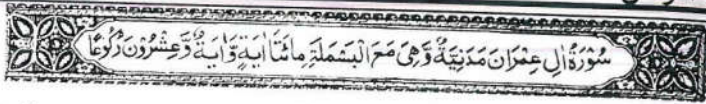 سُوْرَةُ اٰلِ عِمْرَانَ مَدَنِيَّةٌ وَّهِىَ مَعَ الْبَسْمَلَةِ مِائَتَا اٰيَةٍ وَّاٰيَةٌ وَّعِشْرُوْنَ رُكُوْعًا